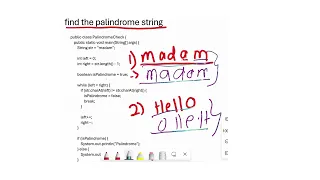 find the palindrome string
public class PalindromeCheck {
public static void main(String[] args) {
String str = "madam";
int left = 0;
int right = str.length() - 1;
boolean isPalindrome = true;
while (left < right) {
if (str.charAt(left) != str.charAt(right)) {
isPalindrome = false;
break;
}
left++;
right--;
}
if (isPalindrome) {
System.out.println("Palindrome");
} else {
System.out
1) madam
madam
2) Hello
olleH